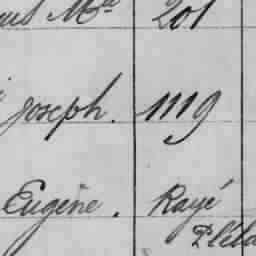 Mce 201
Joseph. 1119
Eugène. Rayé